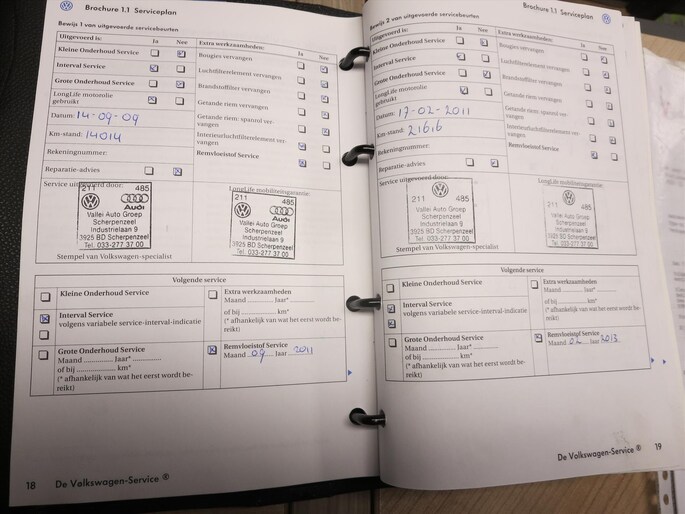 Brochure 1.1 Serviceplan
Bewijs 1 van uitgevoerde servicebeurten
Uitgevoerd is: Ja Nee
Kleine Onderhoud Service
Interval Service
Grote Onderhoud Service
LongLife motorolie
gebruikt
Datum: 14-09-09
Km-stand: 14014
Rekeningnummer:
Reparatie-advies
Extra werkzaamheden: Ja Nee
Bougies vervangen
Luchtfilterelement vervangen
Brandstoffilter vervangen
Getande riem vervangen
Getande riem: spanrol ver-
vangen
Interieurluchtfilterelement ver-
vangen
Remvloeistof Service
Service uitgevoerd door:
211 485
Audi
Vallei Auto Groep
Scherpenzeel
Industrielaan 9
3925 BD Scherpenzeel
Tel. 033-277 37 00
Stempel van Volkswagen-specialist
LongLife mobiliteitsgarantie:
211 485
Audi
Vallei Auto Groep
Scherpenzeel
Industrielaan 9
3925 BD Scherpenzeel
Tel. 033-277 37 00
Volgende service
Kleine Onderhoud Service
Interval Service
volgens variabele service-interval-indicatie
Grote Onderhoud Service
Maand ........ Jaar* ............
of bij ................ km*
(* afhankelijk van wat het eerst wordt be-
reikt)
Extra werkzaamheden
Maand ........ Jaar* ............
of bij ................ km*
(* afhankelijk van wat het eerst wordt be-
reikt)
Remvloeistof Service
Maand 09 Jaar 2011
18 De Volkswagen-Service ®
Brochure 1.1 Serviceplan
Bewijs 2 van uitgevoerde servicebeurten
Uitgevoerd is: Ja Nee
Kleine Onderhoud Service
Interval Service
Grote Onderhoud Service
LongLife motorolie
gebruikt
Datum: 17-02-2011
Km-stand: 21616
Rekeningnummer:
Reparatie-advies
Extra werkzaamheden: Ja Nee
Bougies vervangen
Luchtfilterelement vervangen
Brandstoffilter vervangen
Getande riem vervangen
Getande riem: spanrol ver-
vangen
Interieurluchtfilterelement ver-
vangen
Remvloeistof Service
Service uitgevoerd door:
211 485
Vallei Auto Groep
Scherpenzeel
Industrielaan 9
3925 BD Scherpenzeel
Tel. 033-277 37 00
Stempel van Volkswagen-specialist
LongLife mobiliteitsgarantie:
211 485
Vallei Auto Groep
Scherpenzeel
Industrielaan 9
3925 BD Scherpenzeel
Tel. 033-277 37 00
Volgende service
Kleine Onderhoud Service
Interval Service
volgens variabele service-interval-indicatie
Grote Onderhoud Service
Maand ........ Jaar* ............
of bij ................ km*
(* afhankelijk van wat het eerst wordt be-
reikt)
Extra werkzaamheden
Maand ........ Jaar* ............
of bij ................ km*
(* afhankelijk van wat het eerst wordt be-
reikt)
Remvloeistof Service
Maand 02 Jaar 2013
De Volkswagen-Service ® 19